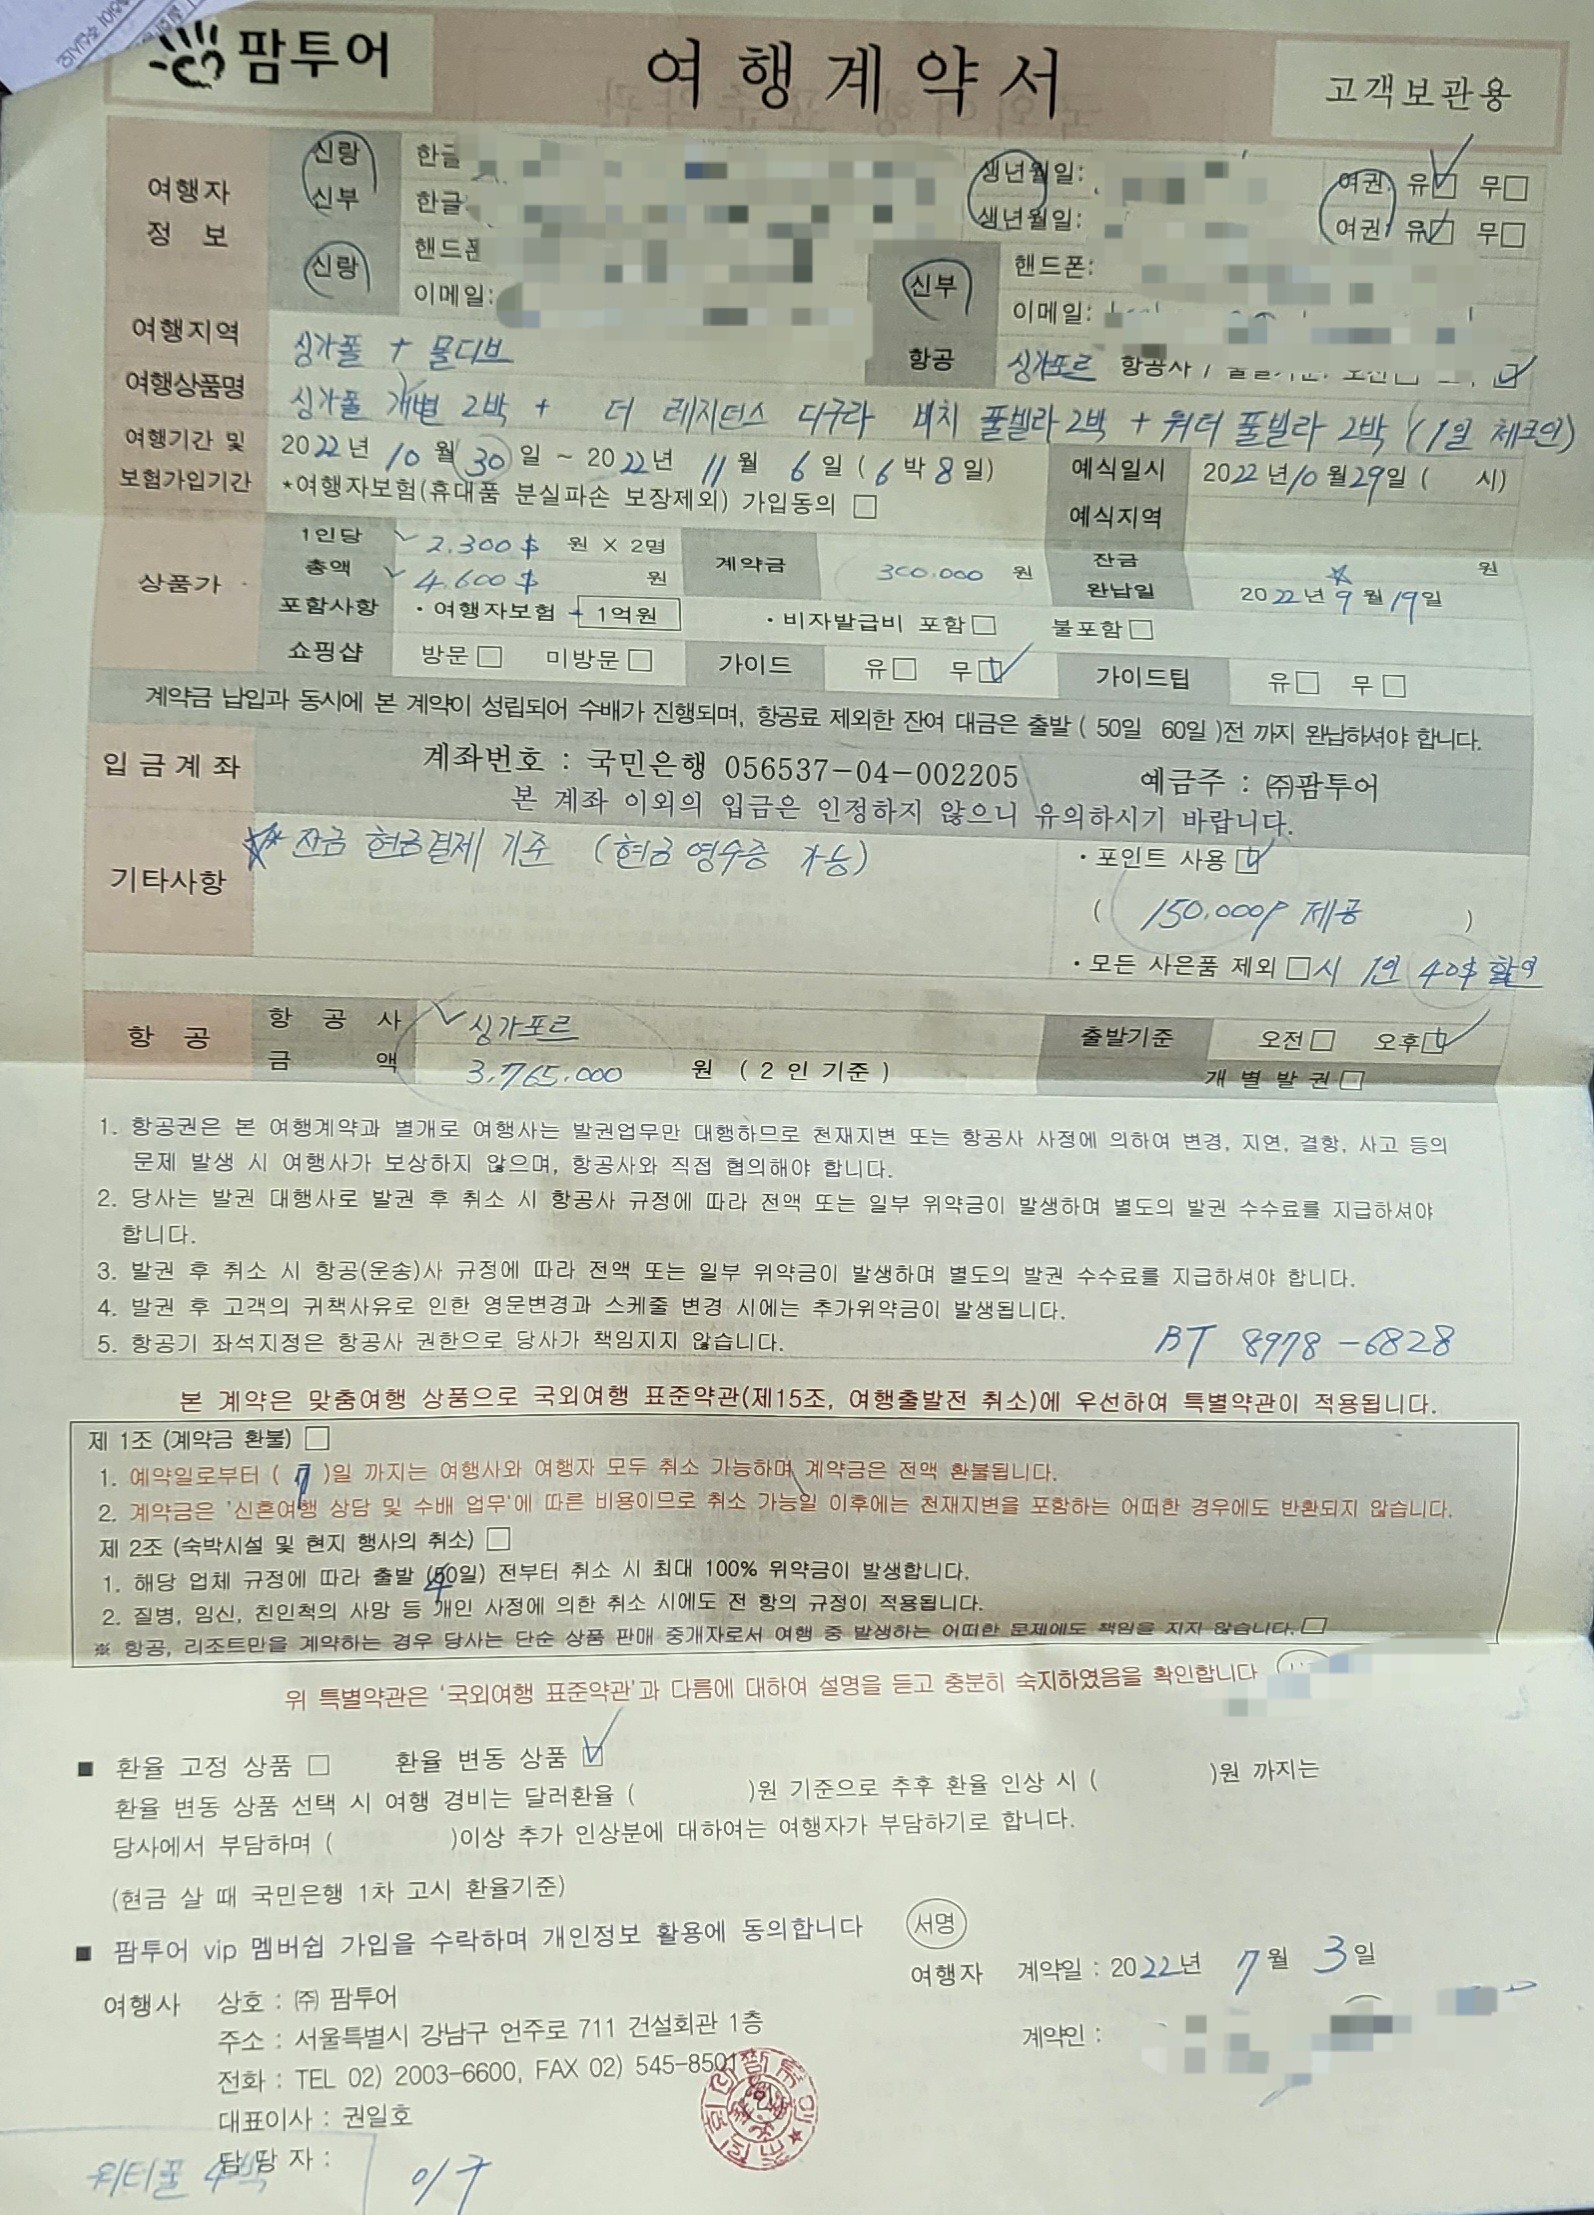 팜투어
여행계약서
고객보관용
여행자
정 보
신랑
한글
생년월일:
여권: 유☑ 무□
신부
한글
생년월일:
여권: 유☑ 무□
신랑
핸드폰
이메일:
신부
핸드폰:
이메일:
여행지역
싱가폴 + 몰디브
항공
싱가포르 항공사 /
여행상품명
싱가폴 개별 2박 + 더 레지던스 디구라 비치 풀빌라 2박 + 워터 풀빌라 2박 (1일 체크인)
여행기간 및
보험가입기간
2022년 10월 30일 ~ 2022년 11월 6일 (6박 8일)
*여행자보험(휴대품 분실파손 보장제외) 가입동의 □
예식일시
2022년 10월 29일 ( 시)
예식지역
상품가
1인당
2,300$ 원 X 2명
총액
4,600$ 원
계약금
300.000 원
잔금
원
완납일
2022년 9월 19일
포함사항
· 여행자보험 - 1억원
· 비자발급비 포함□ 불포함□
쇼핑샵
방문□ 미방문□
가이드
유□ 무☑
가이드팁
유□ 무□
계약금 납입과 동시에 본 계약이 성립되어 수배가 진행되며, 항공료 제외한 잔여 대금은 출발 ( 50일 60일 )전 까지 완납하셔야 합니다.
입금계좌
계좌번호 : 국민은행 056537-04-002205 예금주 : ㈜팜투어
본 계좌 이외의 입금은 인정하지 않으니 유의하시기 바랍니다.
기타사항
** 잔금 현금결제 기준 (현금영수증 가능)
· 포인트 사용 ☑
( 150.000P 제공 )
· 모든 사은품 제외□시 1인 40$ 할인
항 공
항 공 사
싱가포르
출발기준
오전□ 오후☑
금 액
3.765.000 원 ( 2인 기준 )
개별발권□
1. 항공권은 본 여행계약과 별개로 여행사는 발권업무만 대행하므로 천재지변 또는 항공사 사정에 의하여 변경, 지연, 결항, 사고 등의
문제 발생 시 여행사가 보상하지 않으며, 항공사와 직접 협의해야 합니다.
2. 당사는 발권 대행사로 발권 후 취소 시 항공사 규정에 따라 전액 또는 일부 위약금이 발생하며 별도의 발권 수수료를 지급하셔야
합니다.
3. 발권 후 취소 시 항공(운송)사 규정에 따라 전액 또는 일부 위약금이 발생하며 별도의 발권 수수료를 지급하셔야 합니다.
4. 발권 후 고객의 귀책사유로 인한 영문변경과 스케줄 변경 시에는 추가위약금이 발생됩니다.
5. 항공기 좌석지정은 항공사 권한으로 당사가 책임지지 않습니다.
BT 8978-6828
본 계약은 맞춤여행 상품으로 국외여행 표준약관(제15조, 여행출발전 취소)에 우선하여 특별약관이 적용됩니다.
제 1조 (계약금 환불) □
1. 예약일로부터 ( 7 )일 까지는 여행사와 여행자 모두 취소 가능하며 계약금은 전액 환불됩니다.
2. 계약금은 '신혼여행 상담 및 수배 업무'에 따른 비용이므로 취소 가능일 이후에는 천재지변을 포함하는 어떠한 경우에도 반환되지 않습니다.
제 2조 (숙박시설 및 현지 행사의 취소) □
1. 해당 업체 규정에 따라 출발 (40일) 전부터 취소 시 최대 100% 위약금이 발생합니다.
2. 질병, 임신, 친인척의 사망 등 개인 사정에 의한 취소 시에도 전 항의 규정이 적용됩니다.
※ 항공, 리조트만을 계약하는 경우 당사는 단순 상품 판매 중개자로서 여행 중 발생하는 어떠한 문제에도 책임을 지지 않습니다.□
위 특별약관은 '국외여행 표준약관'과 다름에 대하여 설명을 듣고 충분히 숙지하였음을 확인합니다
■ 환율 고정 상품 □ 환율 변동 상품 ☑
환율 변동 상품 선택 시 여행 경비는 달러환율 ( )원 기준으로 추후 환율 인상 시 ( )원 까지는
당사에서 부담하며 ( )이상 추가 인상분에 대하여는 여행자가 부담하기로 합니다.
(현금 살 때 국민은행 1차 고시 환율기준)
■ 팜투어 vip 멤버쉽 가입을 수락하며 개인정보 활용에 동의합니다 서명
여행사 상호 : ㈜ 팜투어
주소 : 서울특별시 강남구 언주로 711 건설회관 1층
전화 : TEL 02) 2003-6600, FAX 02) 545-8501
대표이사 : 권일호
담당자 :
여행자 계약일 : 2022년 7월 3일
계약인 :
워터풀 4박